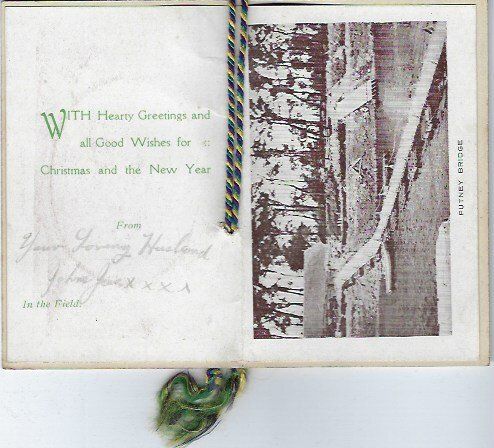 WITH Hearty Greetings and
all Good Wishes for ::
Christmas and the New Year
From
Your Loving Husband
John xxxx
In the Field.
PUTNEY BRIDGE